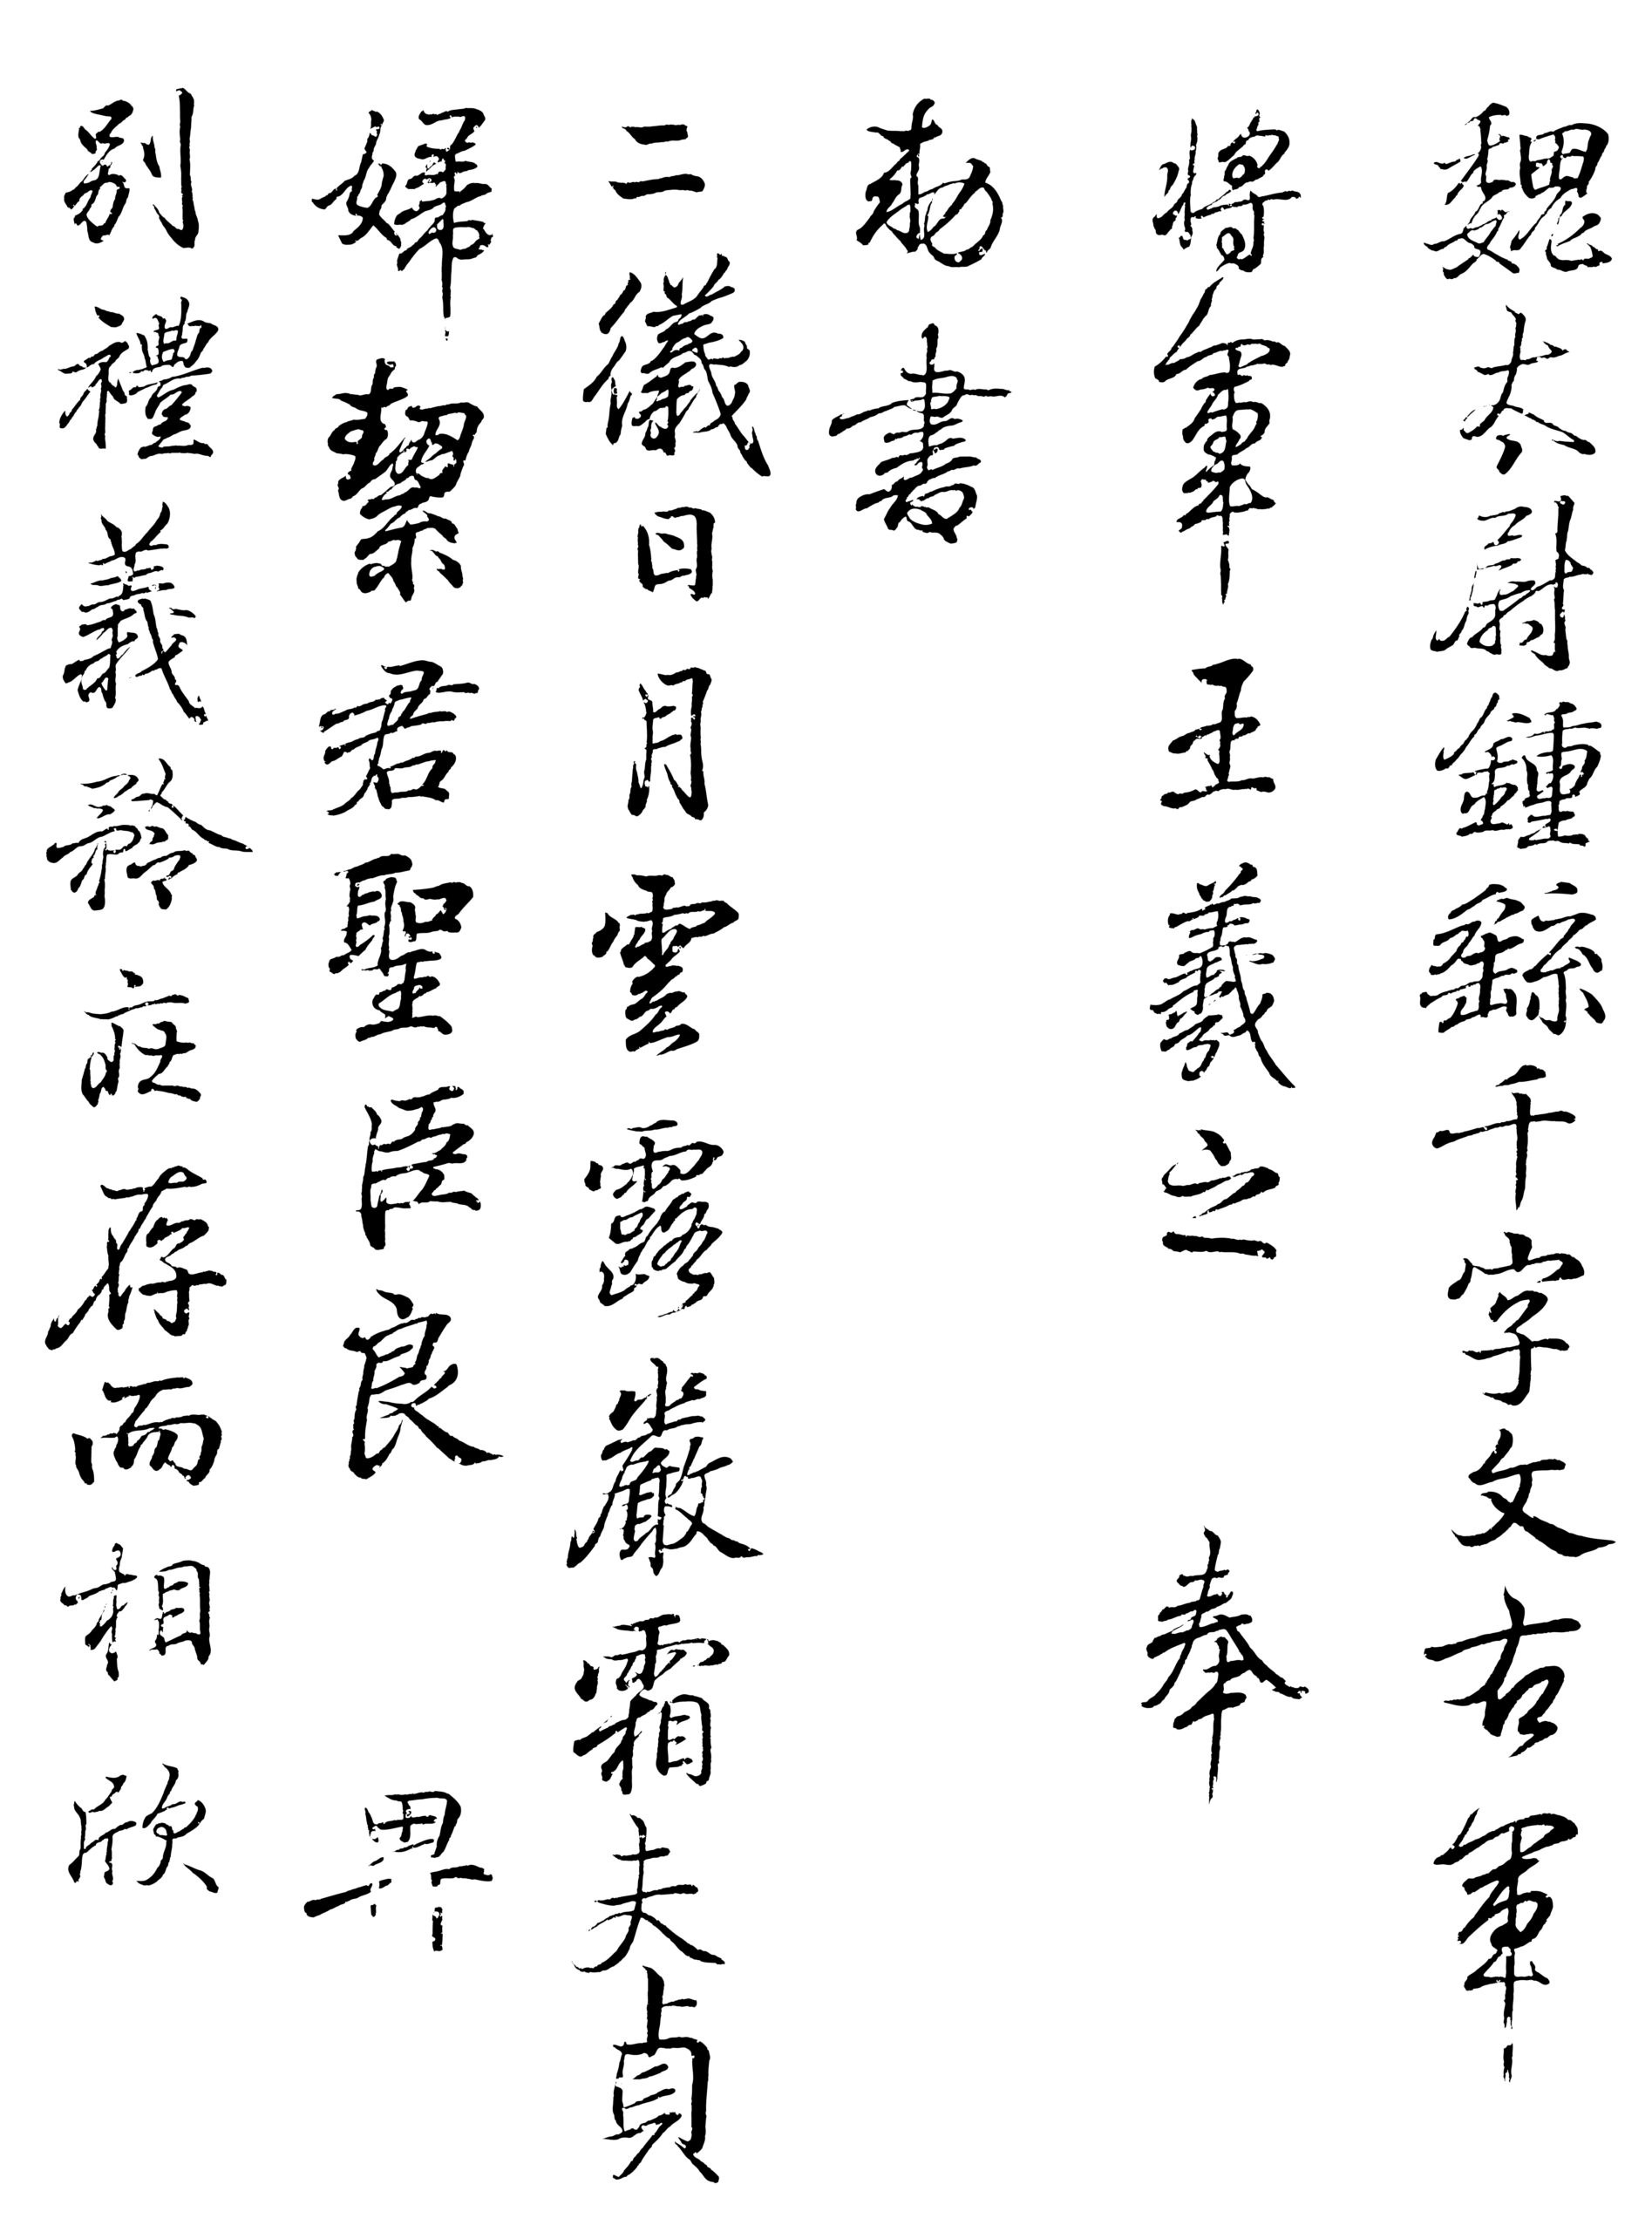 魏太尉鍾繇千字文右軍
將軍王羲之奉
勅書
二儀日月雲露嚴霜夫貞
婦絜君聖臣良異
別禮義矜莊存而相欣